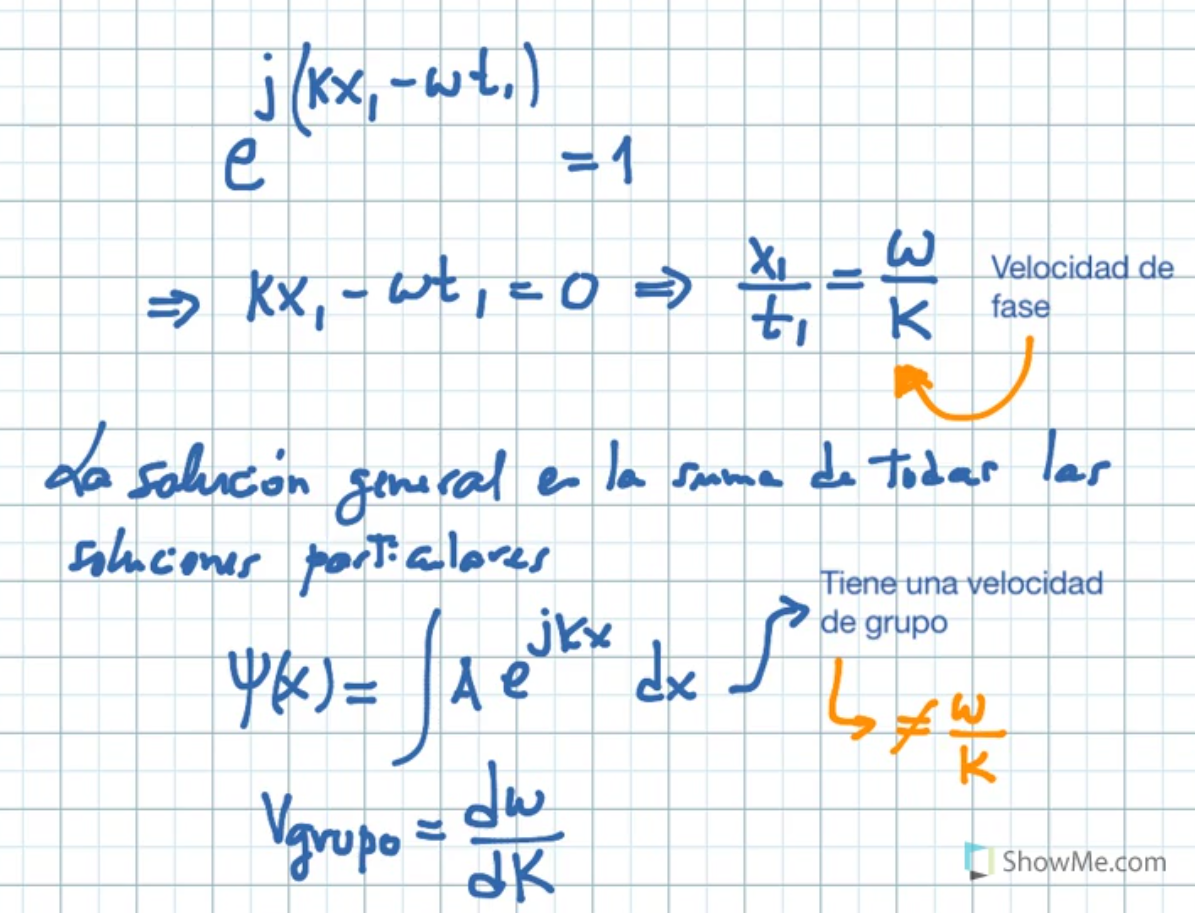 e^{j(kx₁-ωt₁)} = 1
⇒ kx₁ - ωt₁ = 0 ⇒ x₁/t₁ = ω/K
Velocidad de
fase
La solución general es la suma de todas las
soluciones particulares
Tiene una velocidad
de grupo
Ψ(x) = ∫ A e^{jkx} dx
≠ ω/K
Vgrupo = dω/dK
ShowMe.com